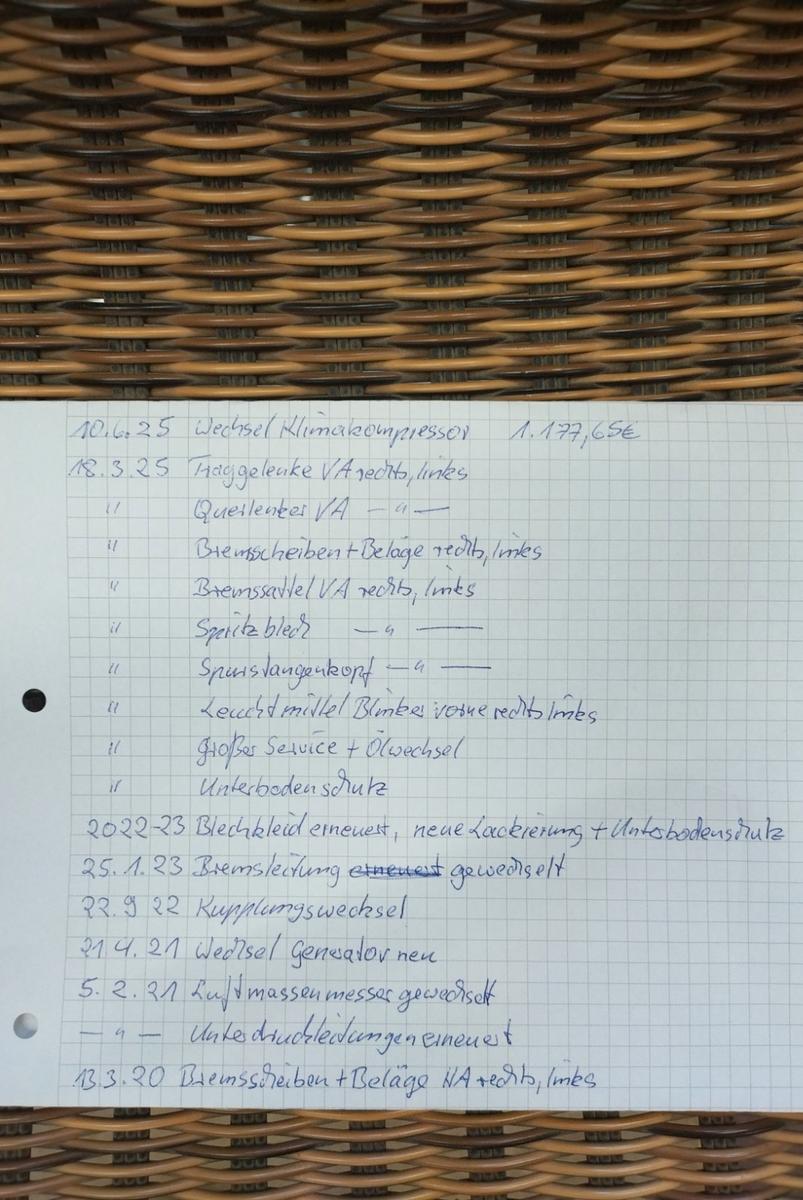 10.6.25 Wechsel Klimakompressor 1.177,65€
18.3.25 Traggelenke VA rechts, links
" Querlenker VA — " —
" Bremsscheiben + Beläge rechts, links
" Bremssattel VA rechts, links
" Spritzblech — " —
" Spurstangenkopf — " —
" Leuchtmittel Blinker vorne rechts links
" großer Service + Ölwechsel
" Unterbodenschutz
2022-23 Blechkleid erneuert, neue Lackierung + Unterbodenschutz
25.1.23 Bremsleitung erneuert gewechselt
22.9 22 Kupplungswechsel
21 4.21 Wechsel Generator neu
5.2.21 Luftmassenmesser gewechselt
— " — Unterdruckleitungen erneuert
13.3.20 Bremsscheiben + Beläge HA rechts, links